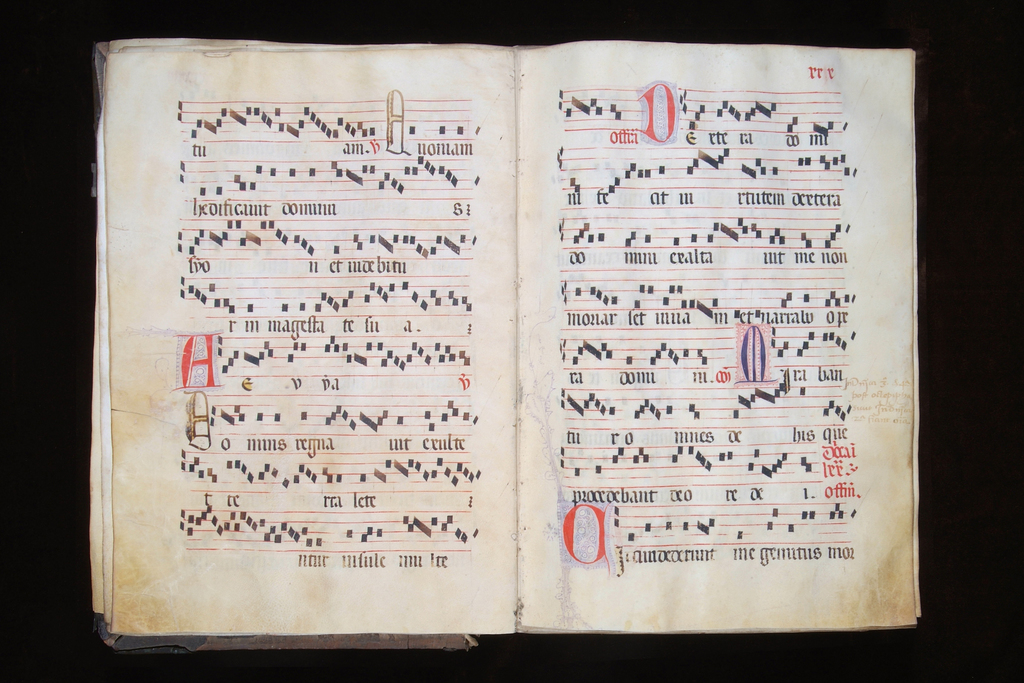 tu am. V Quoniam
hedificauit dominus
syo n et uidebitu
r in magesta te su a.
A E V ya V
Do minus regna uit exulte
t te rra lete
ntur insule mu lte
xx x
offm D E xte ra do mi
ni fe cit ui rtutem dextera
do mini exalta uit me non
moriar set uiua m et narrabo ope
ra domi ni. com M Ira ban
tu r o mnes de his que
procedebant de o re de i. offm.
Circumdederunt me gemitus mor